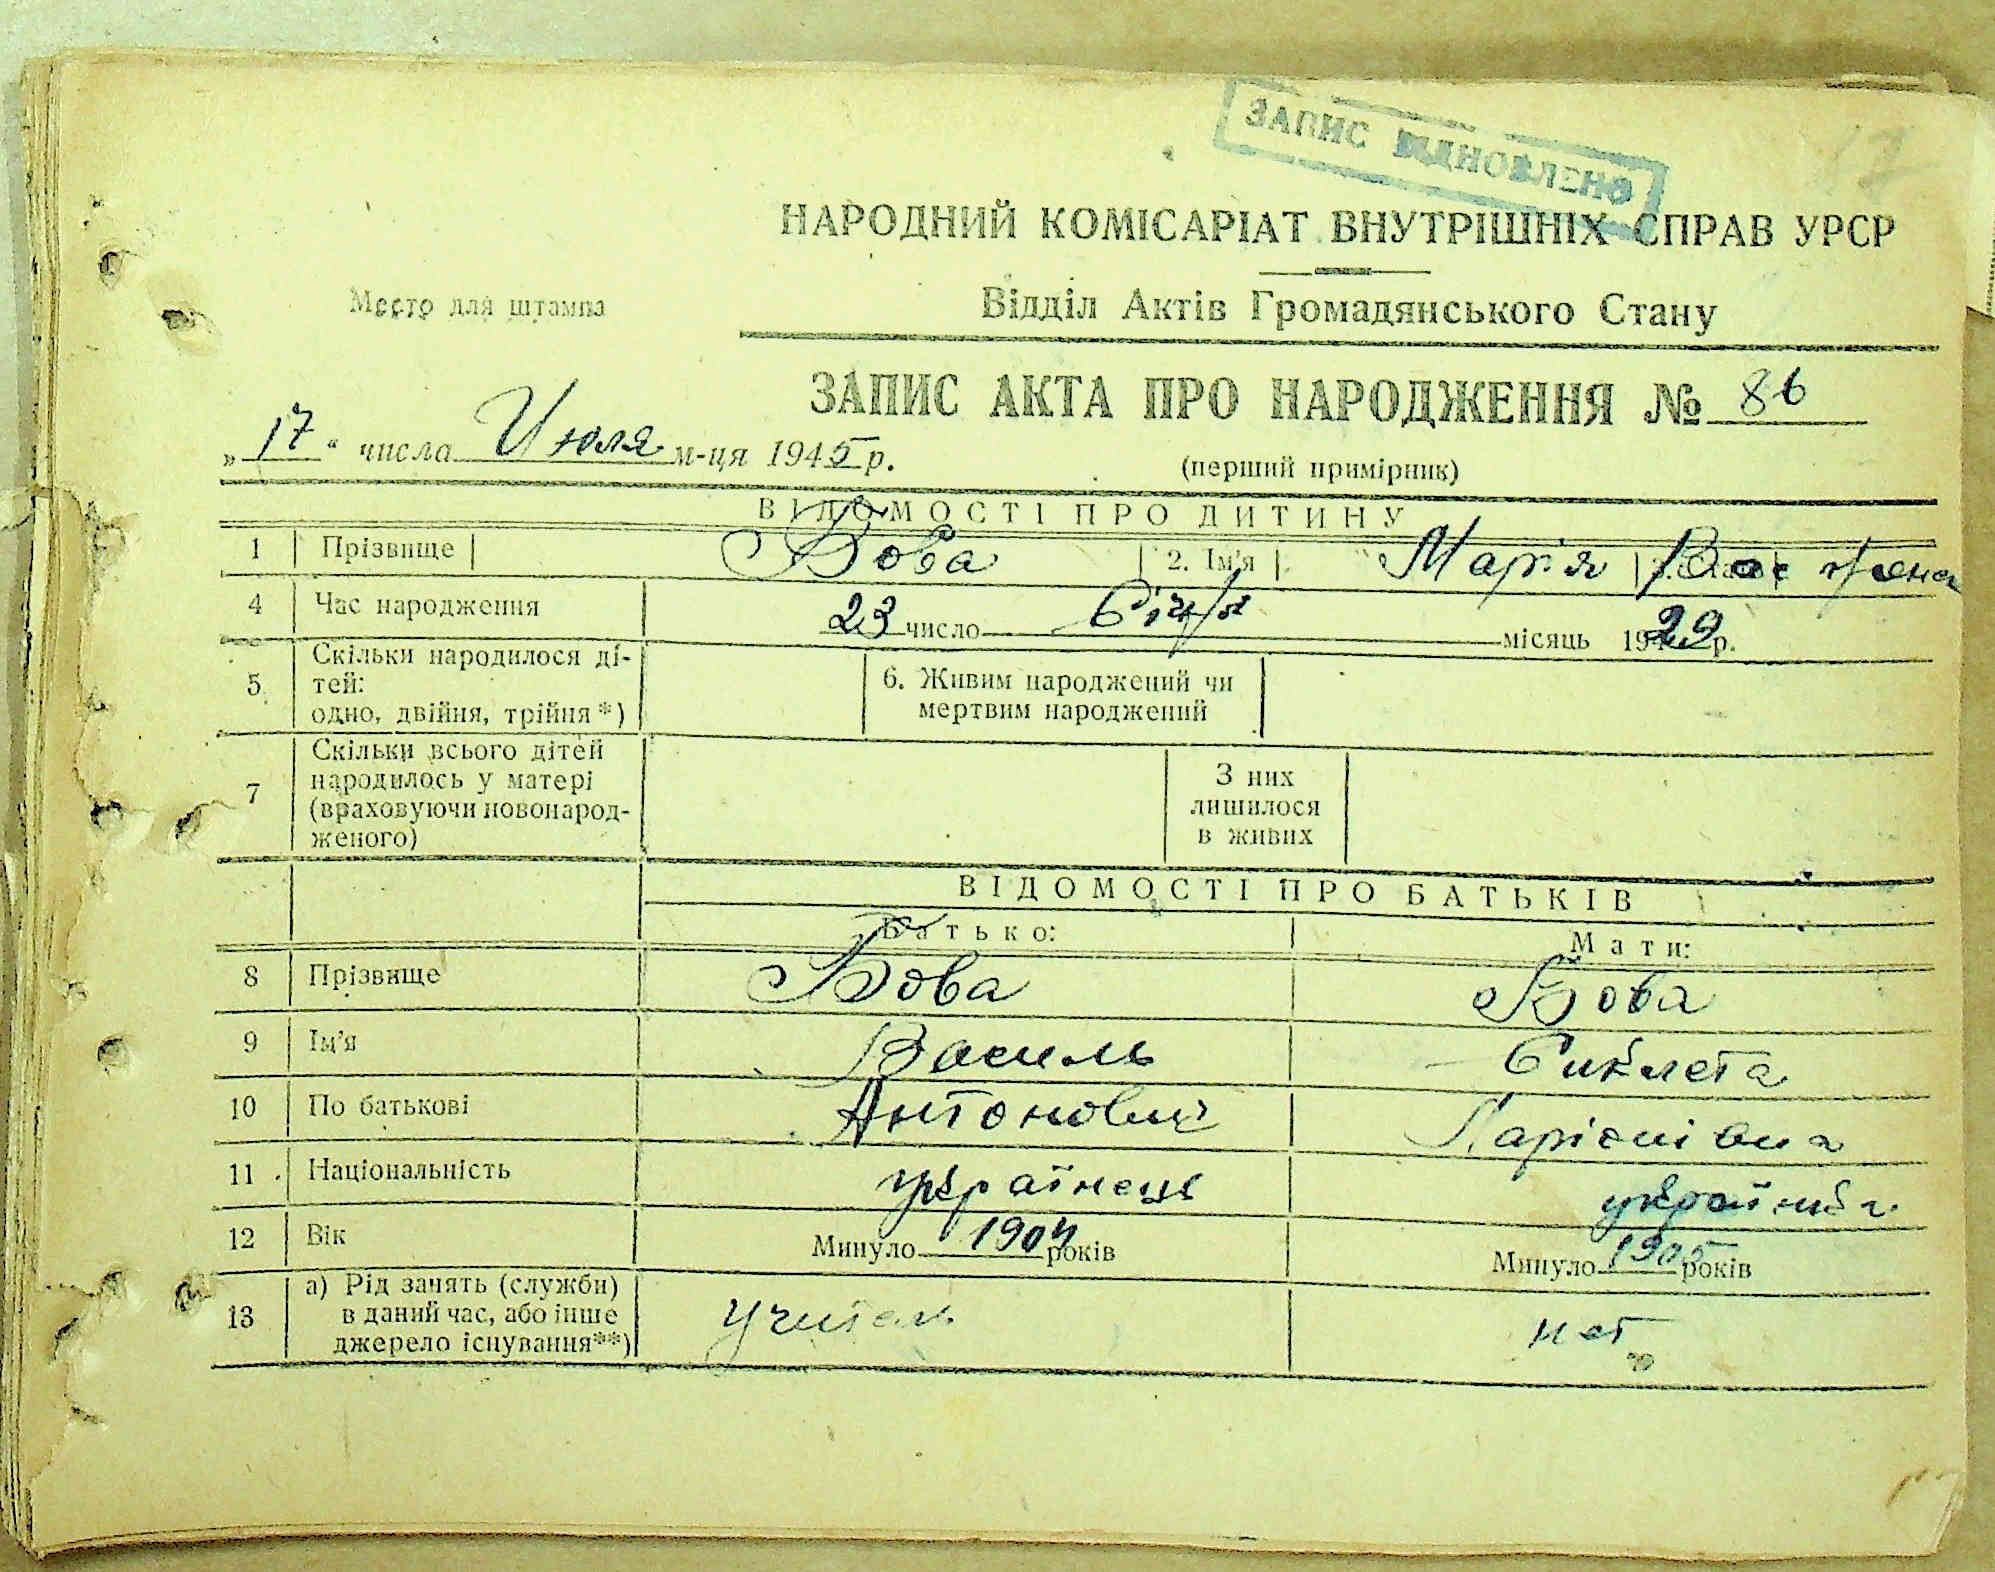 ЗАПИС ВІДНОВЛЕНО
17
НАРОДНИЙ КОМІСАРІАТ ВНУТРІШНІХ СПРАВ УРСР
Место для штампа
Відділ Актів Громадянського Стану
ЗАПИС АКТА ПРО НАРОДЖЕННЯ № 86
„17“ числа Июля м-ця 1945 р.
(перший примірник)
ВІДОМОСТІ ПРО ДИТИНУ
1 Прізвище Бова 2. Ім'я Марія
4 Час народження 23 число Січня місяць 1929 р.
5 Скільки народилося ді-
тей:
одно, двійня, трійня *)
6. Живим народжений чи
мертвим народжений
7 Скільки всього дітей
народилось у матері
(враховуючи новонарод-
женого)
З них
лишилося
в живих
ВІДОМОСТІ ПРО БАТЬКІВ
Батько: Мати:
8 Прізвище Бова Бова
9 Ім'я Василь Сиклета
10 По батькові Антонович Ларіонівна
11 Національність українець українка
12 Вік Минуло 1904 років Минуло 1905 років
13 а) Рід занять (служби)
в даний час, або інше
джерело існування**)
учитель нет